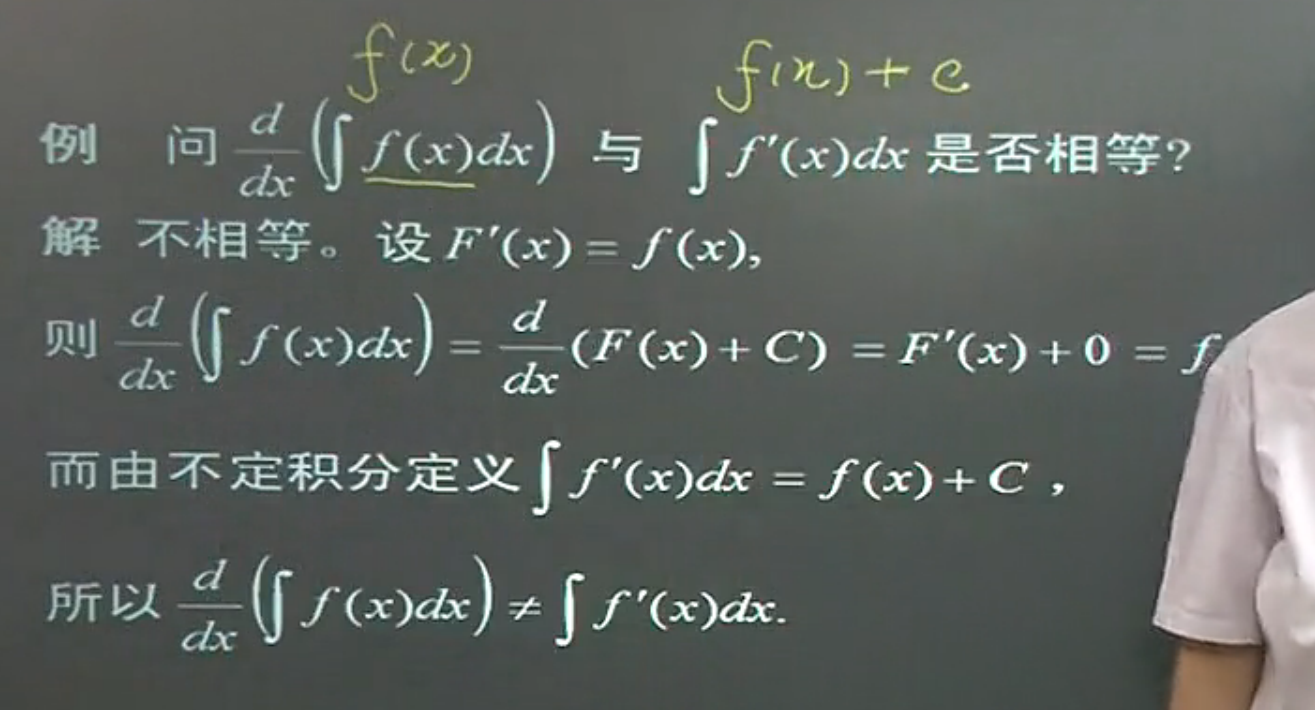 f(x) f(x)+c
例 问 d/dx (∫ f(x)dx) 与 ∫ f′(x)dx 是否相等?
解 不相等。设 F′(x) = f(x),
则 d/dx (∫ f(x)dx) = d/dx (F(x)+C) = F′(x)+0 = f
而由不定积分定义 ∫ f′(x)dx = f(x)+C ,
所以 d/dx (∫ f(x)dx) ≠ ∫ f′(x)dx.